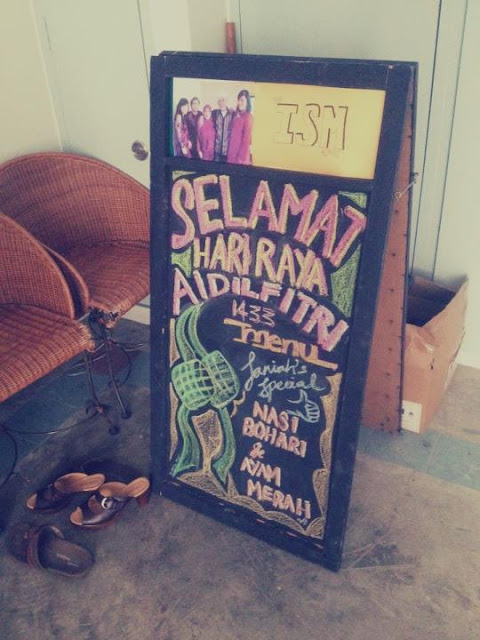 ISM
SELAMAT
HARI RAYA
AIDILFITRI
1433
menu
Janiah's
Special
NASI
BOHARI
&
AYAM
MERAH